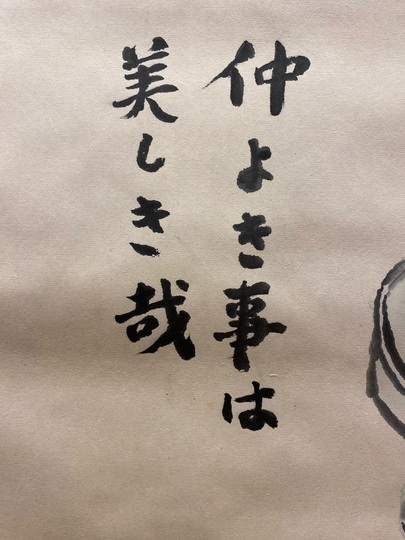 仲よき事は
美しき哉